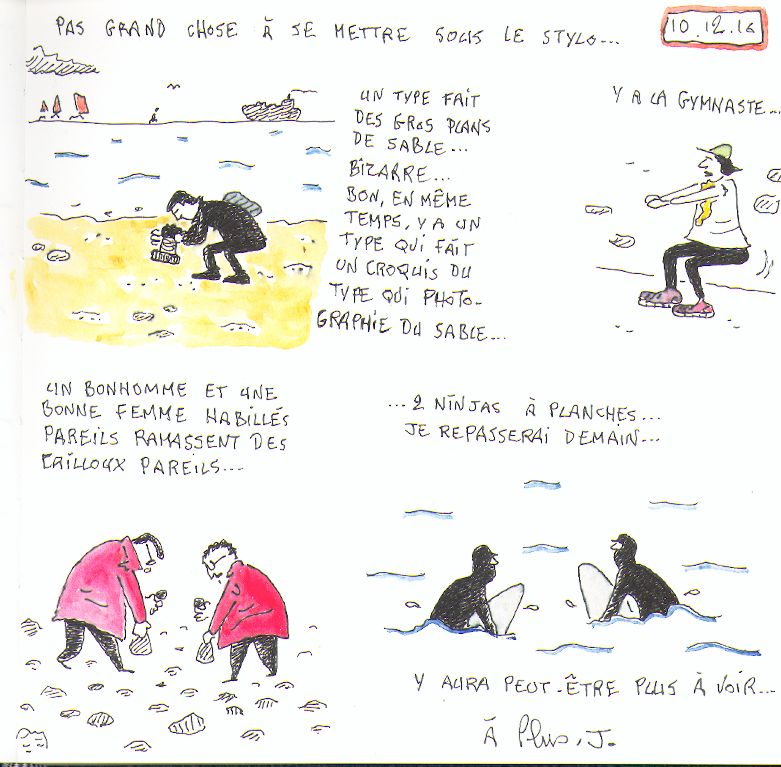 PAS GRAND CHOSE À SE METTRE SOUS LE STYLO...
10.12.16
UN TYPE FAIT
DES GROS PLANS
DE SABLE...
BIZARRE...
BON, EN MÊME
TEMPS, Y A UN
TYPE QUI FAIT
UN CROQUIS DU
TYPE QUI PHOTO-
GRAPHIE DU SABLE...
Y A LA GYMNASTE...
UN BONHOMME ET UNE
BONNE FEMME HABILLÉS
PAREILS RAMASSENT DES
CAILLOUX PAREILS...
...2 NINJAS À PLANCHES...
JE REPASSERAI DEMAIN...
Y AURA PEUT-ÊTRE PLUS À VOIR...
À Plus, J.